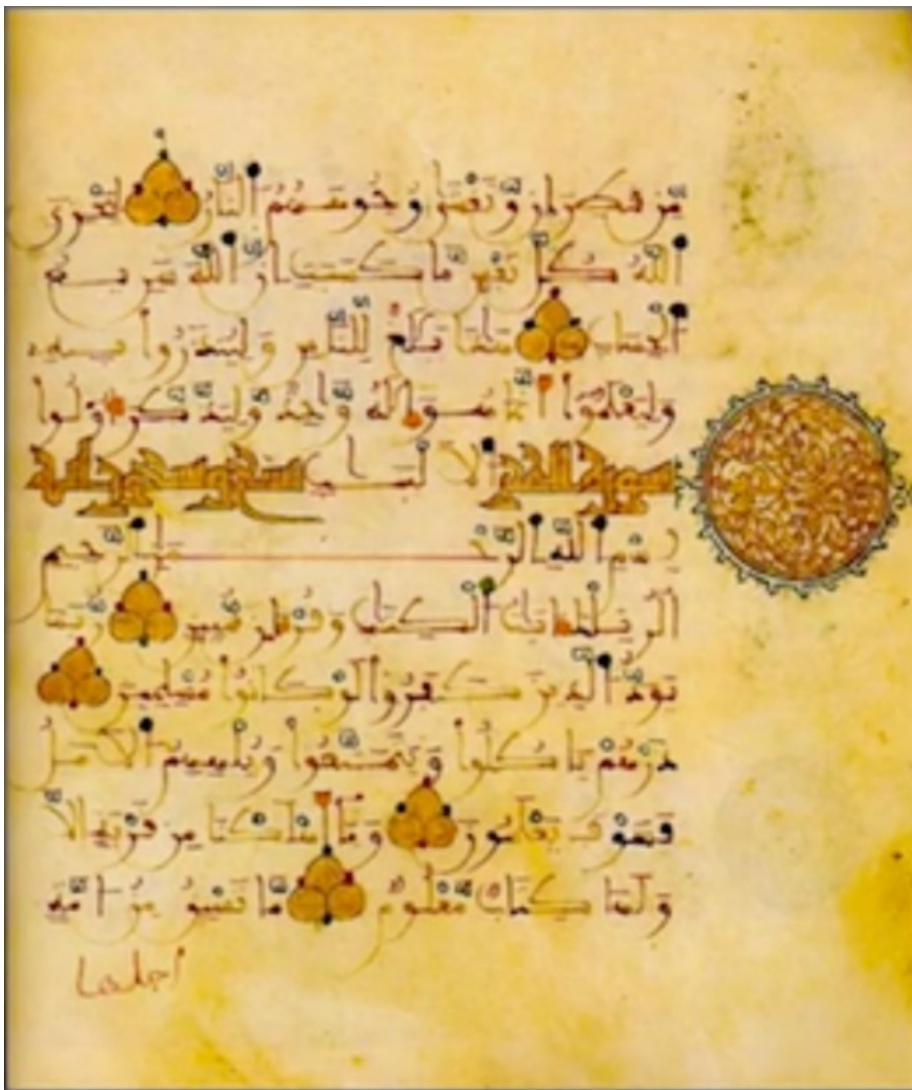 مِّن قَطِرَانٍ وَتَغْشَىٰ وُجُوهَهُمُ النَّارُ لِيَجْزِيَ
اللَّهُ كُلَّ نَفْسٍ مَّا كَسَبَتْ إِنَّ اللَّهَ سَرِيعُ
الْحِسَابِ هَٰذَا بَلَٰغٌ لِّلنَّاسِ وَلِيُنذَرُوا بِهِ
وَلِيَعْلَمُوا أَنَّمَا هُوَ إِلَٰهٌ وَاحِدٌ وَلِيَذَّكَّرَ أُولُوا
سورة الحجر الالبٰب تسع وتسعون اية
بِسْمِ اللَّهِ الرَّحْمَٰنِ الرَّحِيمِ
الٓر تِلْكَ ءَايَٰتُ الْكِتَٰبِ وَقُرْءَانٍ مُّبِينٍ رُّبَمَا
يَوَدُّ الَّذِينَ كَفَرُوا لَوْ كَانُوا مُسْلِمِينَ
ذَرْهُمْ يَأْكُلُوا وَيَتَمَتَّعُوا وَيُلْهِهِمُ الْأَمَلُ
فَسَوْفَ يَعْلَمُونَ وَمَا أَهْلَكْنَا مِن قَرْيَةٍ إِلَّا
وَلَهَا كِتَابٌ مَّعْلُومٌ مَّا تَسْبِقُ مِنْ أُمَّةٍ
أجلها